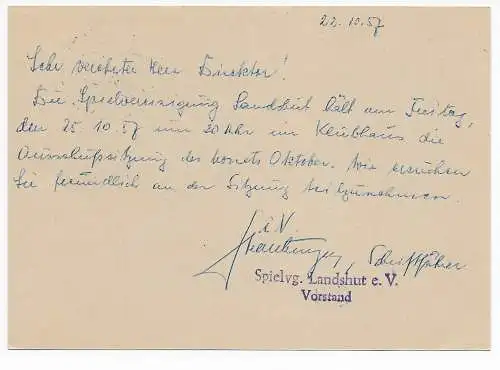 22.10.57
Sehr verehrter Herr Direktor!
Die Spielvereinigung Landshut hält am Freitag,
den 25.10.57 um 20 Uhr im Klubhaus die
Ausschußsitzung des Monats Oktober. Wir ersuchen
Sie freundlich an der Sitzung teilzunehmen.
i.V.
Schriftführer
Spielvg. Landshut e.V.
Vorstand